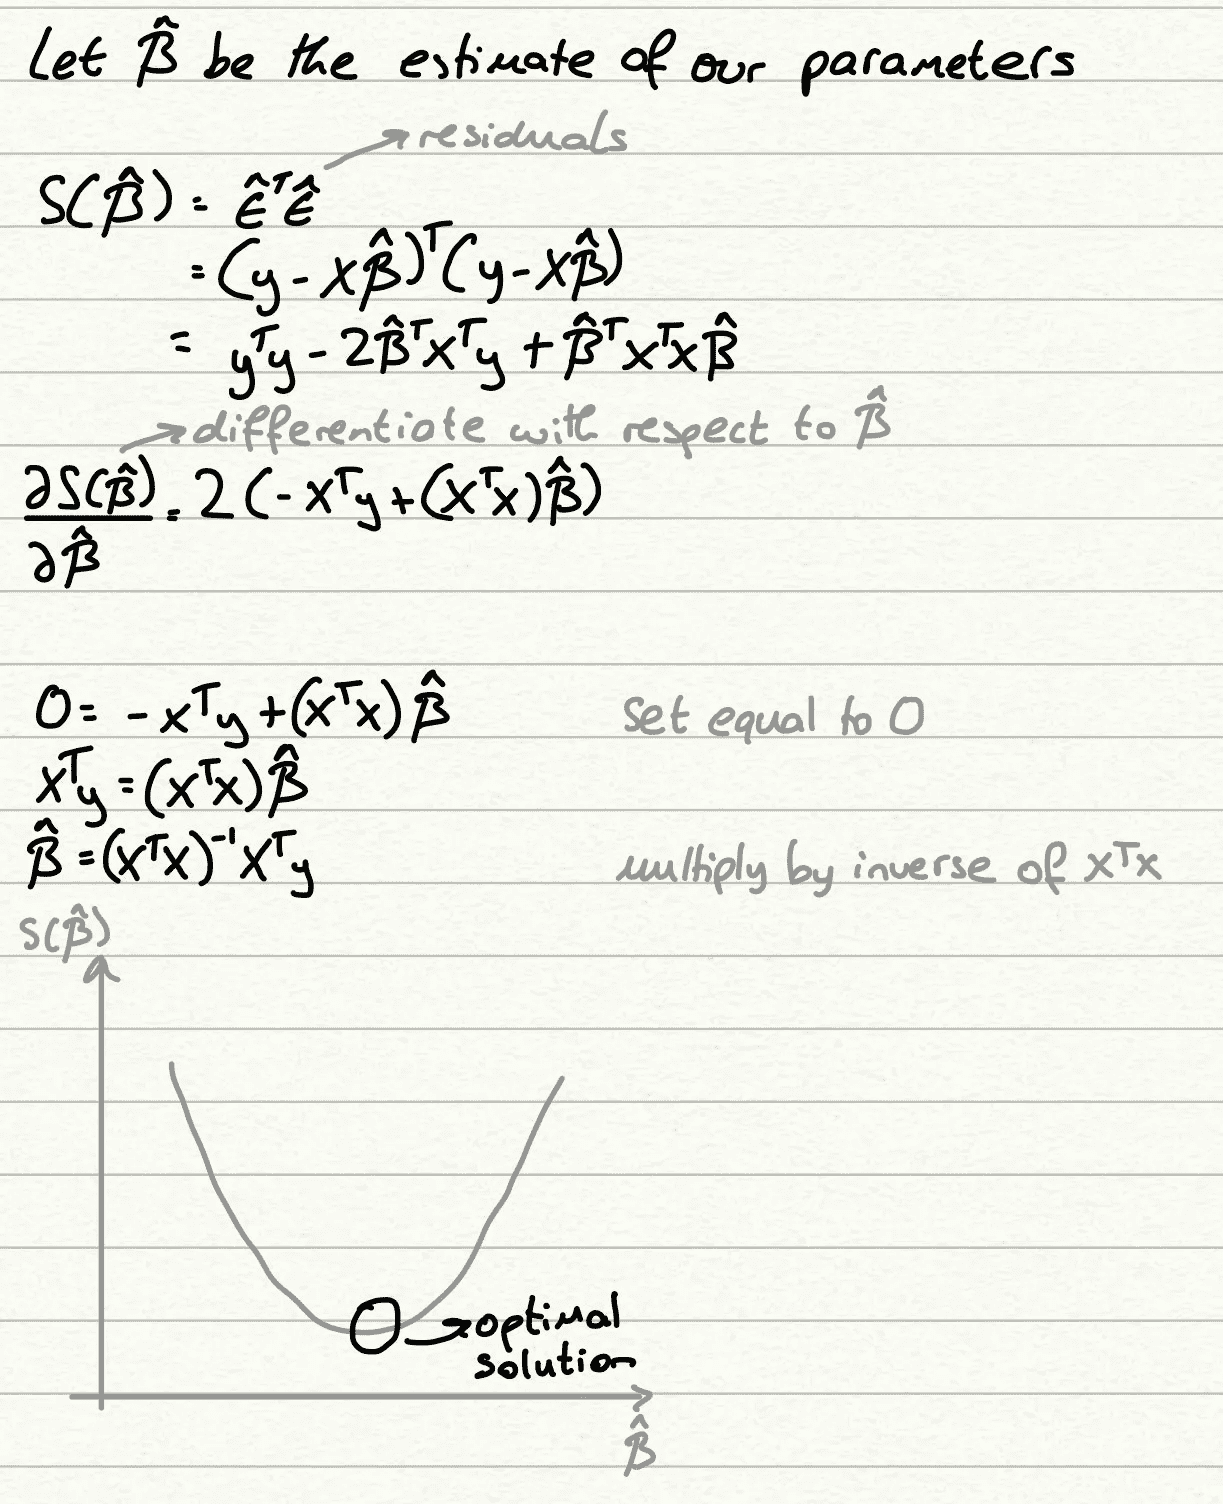 Let β̂ be the estimate of our parameters
residuals
S(β̂) = ε̂ᵀε̂
= (y - Xβ̂)ᵀ(y - Xβ̂)
= yᵀy - 2β̂ᵀXᵀy + β̂ᵀXᵀXβ̂
differentiate with respect to β̂
∂S(β̂)/∂β̂ = 2(-Xᵀy + (XᵀX)β̂)
0 = -Xᵀy + (XᵀX)β̂ Set equal to 0
Xᵀy = (XᵀX)β̂
β̂ = (XᵀX)⁻¹Xᵀy multiply by inverse of XᵀX
S(β̂)
optimal
solution
β̂